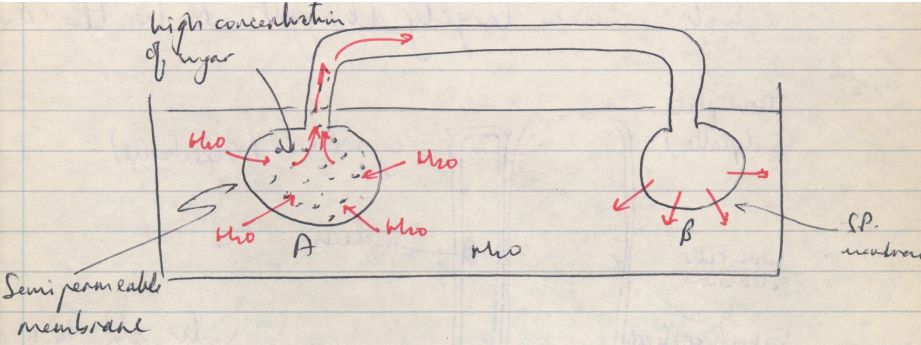 high concentration
of sugar
H2O
H2O
H2O
H2O
A
H2O
B
S.P.
membrane
Semi permeable
membrane